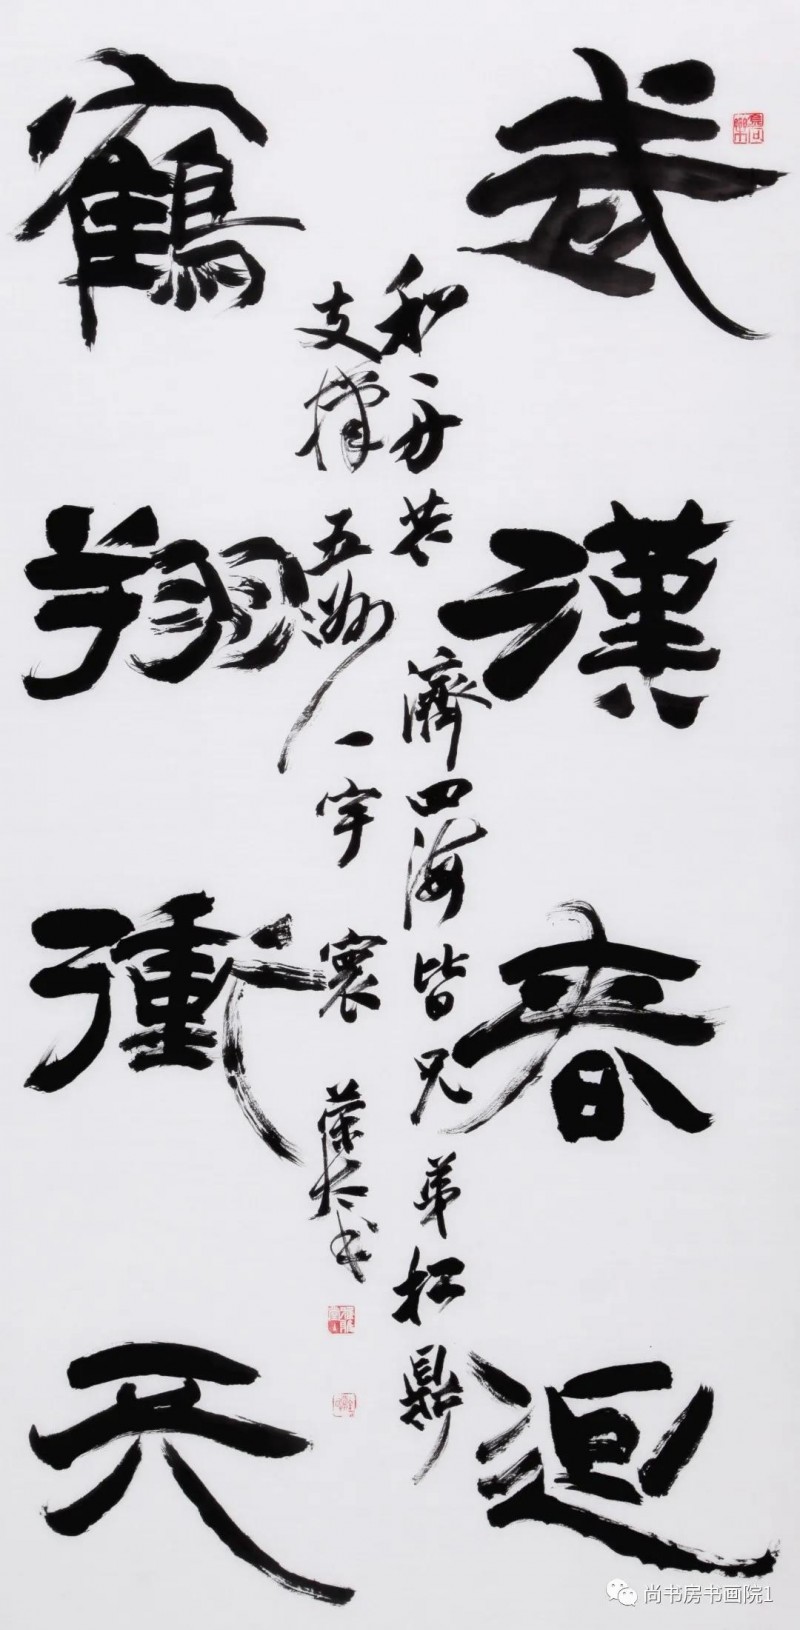 武漢春迴
鶴翔衝天
和一舟共濟四海皆兄弟扛鼎
支撑五洲一宇寰
尚书房书画院1